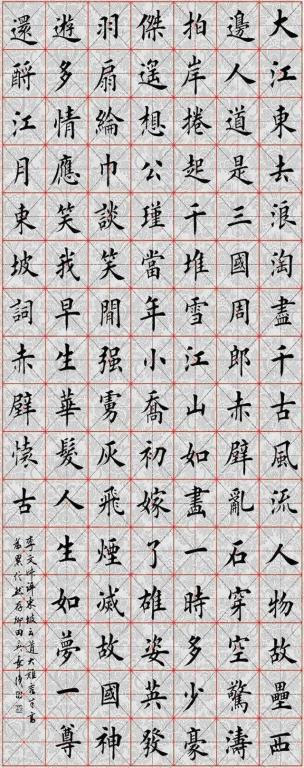 大江東去浪淘盡千古風流人物故壘西
邊人道是三國周郎赤壁亂石穿空驚濤
拍岸捲起千堆雪江山如畫一時多少豪
傑遙想公瑾當年小喬初嫁了雄姿英發
羽扇綸巾談笑閒强虜灰飛煙滅故國神
遊多情應笑我早生華髮人生如夢一尊
還酹江月東坡詞赤壁懷古